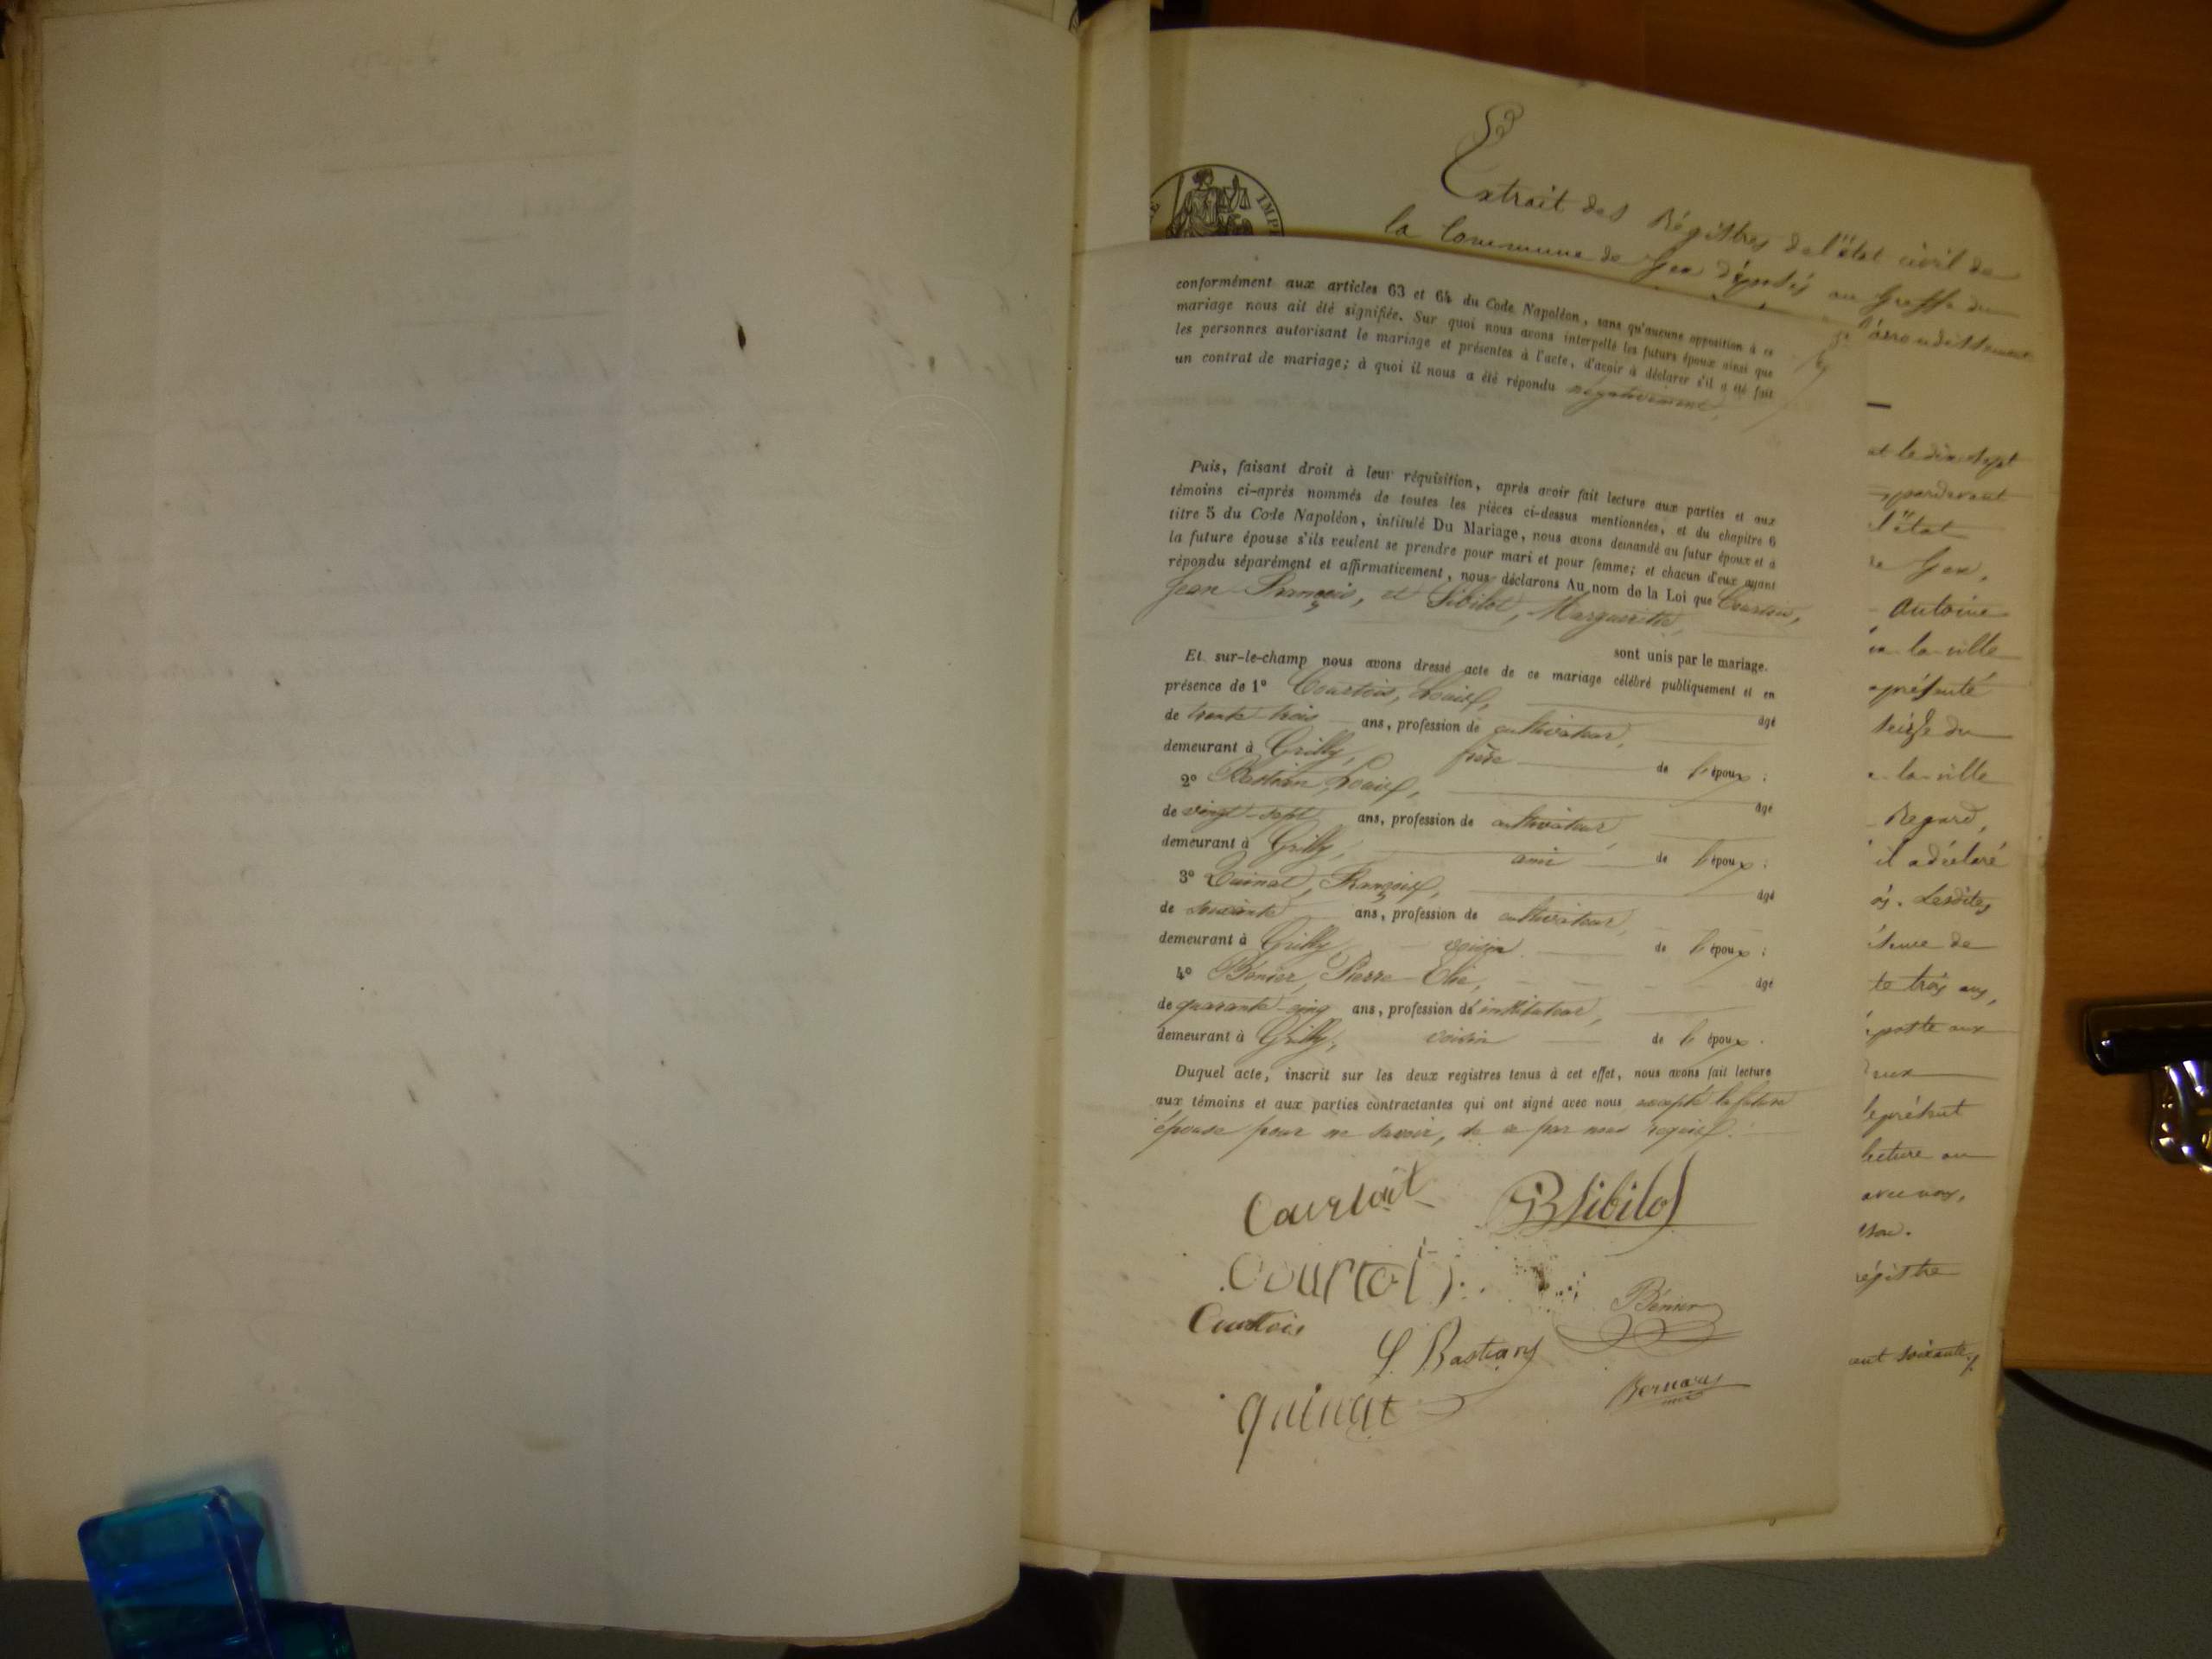 Extrait des Régistres de l'état civil de
la Commune de Gex déposés au Greffe du
l'arrondissement
IMPE
conformément aux articles 63 et 64 du Code Napoléon, sans qu'aucune opposition à ce
mariage nous ait été signifiée. Sur quoi nous avons interpellé les futurs époux ainsi que
les personnes autorisant le mariage et présentes à l'acte, d'avoir à déclarer s'il a été fait
un contrat de mariage; à quoi il nous a été répondu négativement,
Puis, faisant droit à leur réquisition, après avoir fait lecture aux parties et aux
témoins ci-après nommés de toutes les pièces ci-dessus mentionnées, et du chapitre 6
titre 5 du Code Napoléon, intitulé Du Mariage, nous avons demandé au futur époux et à
la future épouse s'ils veulent se prendre pour mari et pour femme; et chacun d'eux ayant
répondu séparément et affirmativement, nous déclarons Au nom de la Loi que Courtois,
Jean-François, et Sibilot, Marguerite,
sont unis par le mariage.
Et sur-le-champ nous avons dressé acte de ce mariage célébré publiquement et en
présence de 1° Courtois, Louis, âgé
de trente-trois ans, profession de cultivateur,
demeurant à Grilly, frère de l'époux;
2° Bastian, Louis, âgé
de vingt-sept ans, profession de cultivateur,
demeurant à Grilly, ami de l'époux;
3° Quinat, François, âgé
de soixante ans, profession de cultivateur,
demeurant à Grilly, voisin de l'époux;
4° Bénier, Pierre-Elie, âgé
de quarante-cinq ans, profession d'instituteur,
demeurant à Grilly, voisin de l'époux.
Duquel acte, inscrit sur les deux registres tenus à cet effet, nous avons fait lecture
aux témoins et aux parties contractantes qui ont signé avec nous excepté la future
épouse pour ne savoir, de ce par nous requis.
Courtois
B Sibilot
Courtois
Bénier
Courtois
L. Bastian
Bernard
quinat
et le dix-sept
pardevant
l'état
de Gex,
Antoine
la ville
présenté
seize du
la ville
Regard,
il a déclaré
Lesdites
te trois ans,
poste aux
deux
le présent
lecture
avec nous,
régistre
cent soixante.